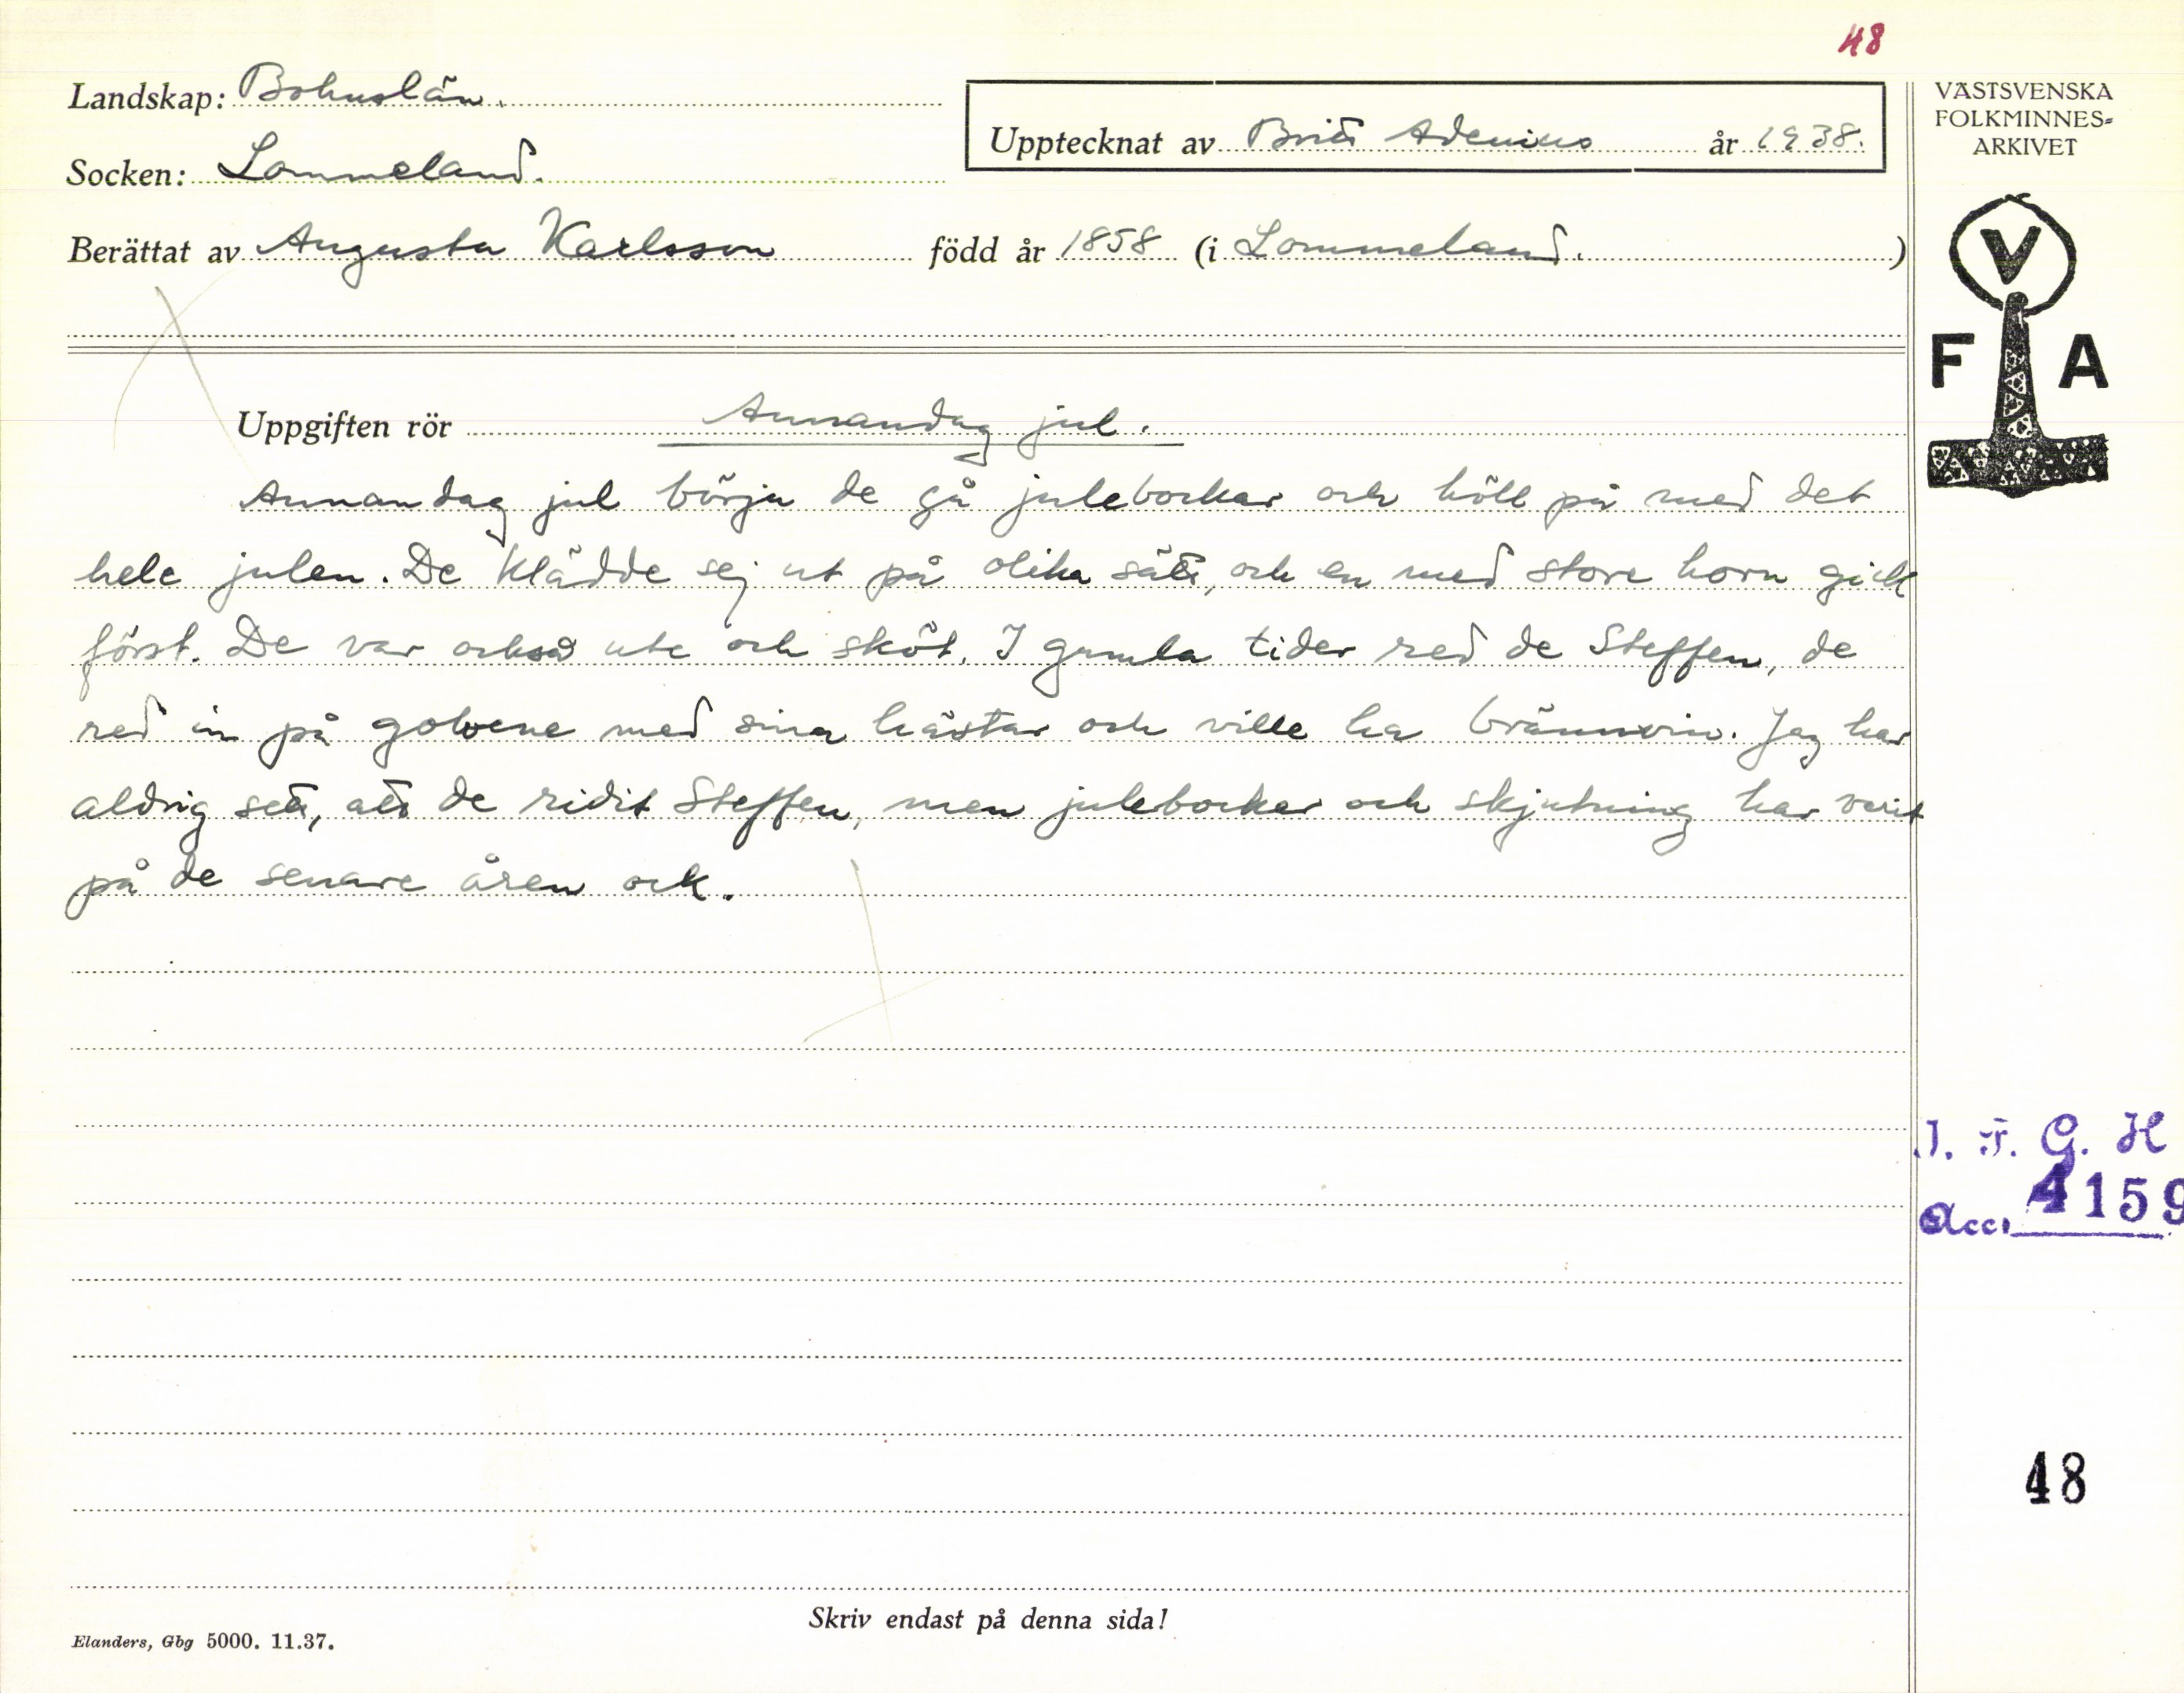 48
Landskap: Bohuslän.
Upptecknat av Britt Adenius år 1938.
Socken: Lommeland.
Berättat av Augusta Karlsson född år 1858 (i Lommeland.)
VÄSTSVENSKA
FOLKMINNES-
ARKIVET
V
F A
Uppgiften rör Annandag jul.
Annandag jul börja de gå julebockar och höll på med det
hele julen. De klädde sej ut på olika sätt, och en med store horn gick
först. De var också ute och sköt. I gamla tider red de Steffen, de
red in på golvene med sina hästar och ville ha brännvin. Jag har
aldrig sett, att de ridit Steffen, men julebockar och skjutning har varit
på de senare åren ock.
I. F. G. H
Acc. 4159
48
Skriv endast på denna sida!
Elanders, Gbg 5000. 11.37.